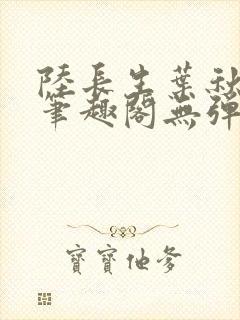 陸長生葉秋
筆趣閣無彈
寶寶他爹